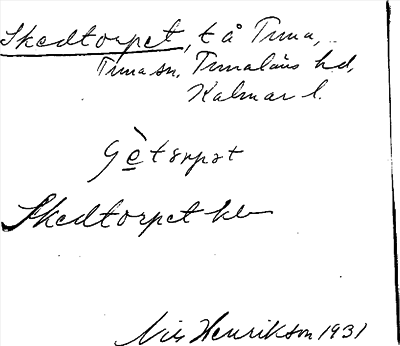 Skedtorpet, t å Tuna,
Tuna sn, Tunaläns hd,
Kalmar l.
Skedtorpet kb
Nils Henrikson 1931